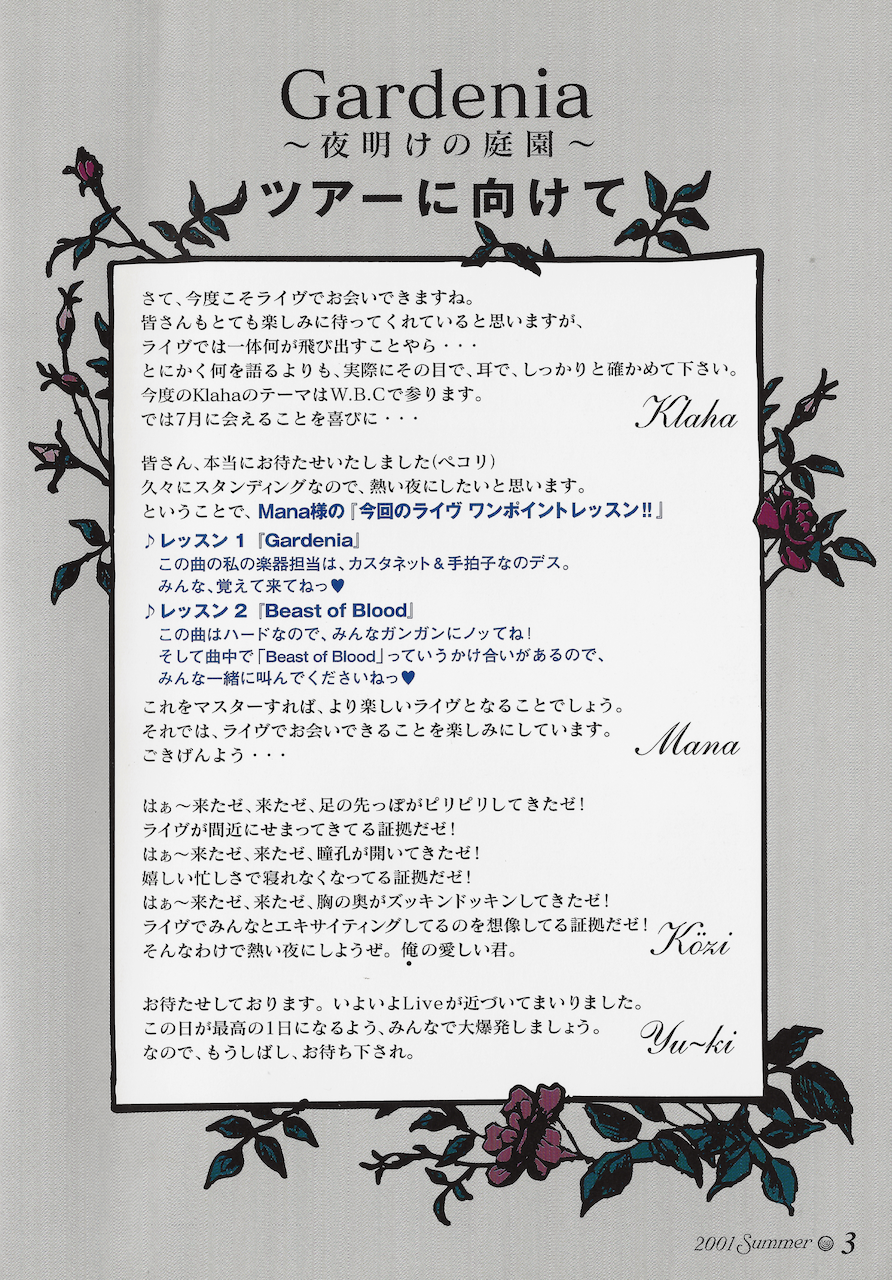 Gardenia
～夜明けの庭園～
ツアーに向けて
さて、今度こそライヴでお会いできますね。
皆さんもとても楽しみに待ってくれていると思いますが、
ライヴでは一体何が飛び出すことやら・・・
とにかく何を語るよりも、実際にその目で、耳で、しっかりと確かめて下さい。
今度のKlahaのテーマはW.B.Cで参ります。
では7月に会えることを喜びに・・・
Klaha
皆さん、本当にお待たせいたしました(ペコリ)
久々にスタンディングなので、熱い夜にしたいと思います。
ということで、Mana様の『今回のライヴ ワンポイントレッスン!!』
♪レッスン 1『Gardenia』
この曲の私の楽器担当は、カスタネット＆手拍子なのデス。
みんな、覚えて来てねっ♥
♪レッスン 2『Beast of Blood』
この曲はハードなので、みんなガンガンにノッてね!
そして曲中で「Beast of Blood」っていうかけ合いがあるので、
みんな一緒に叫んでくださいねっ♥
これをマスターすれば、より楽しいライヴとなることでしょう。
それでは、ライヴでお会いできることを楽しみにしています。
ごきげんよう・・・
Mana
はぁ～来たゼ、来たゼ、足の先っぽがピリピリしてきたゼ!
ライヴが間近にせまってきてる証拠だゼ!
はぁ～来たゼ、来たゼ、瞳孔が開いてきたゼ!
嬉しい忙しさで寝れなくなってる証拠だゼ!
はぁ～来たゼ、来たゼ、胸の奥がズッキンドッキンしてきたゼ!
ライヴでみんなとエキサイティングしてるのを想像してる証拠だゼ!
そんなわけで熱い夜にしようぜ。俺の愛しい君。
Közi
お待たせしております。いよいよLiveが近づいてまいりました。
この日が最高の1日になるよう、みんなで大爆発しましょう。
なので、もうしばし、お待ち下され。
Yu~ki
2001 Summer 3